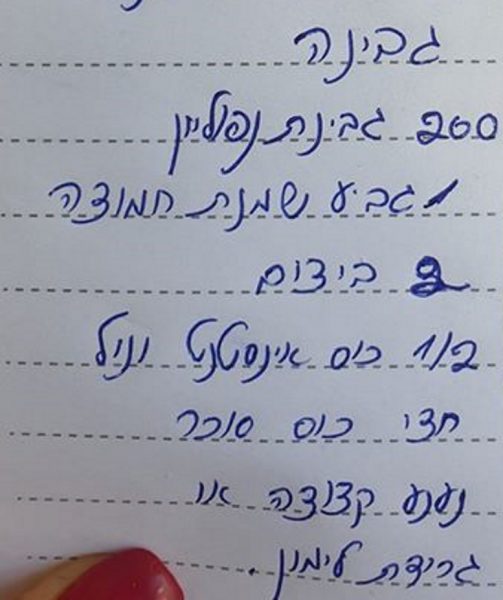 גבינה
200 גבינת נפוליון
1 גביע שמנת חמוצה
2 ביצים
1/2 כוס אינסטנט וניל
חצי כוס סוכר
נענע קצוצה או
גרידת לימון.